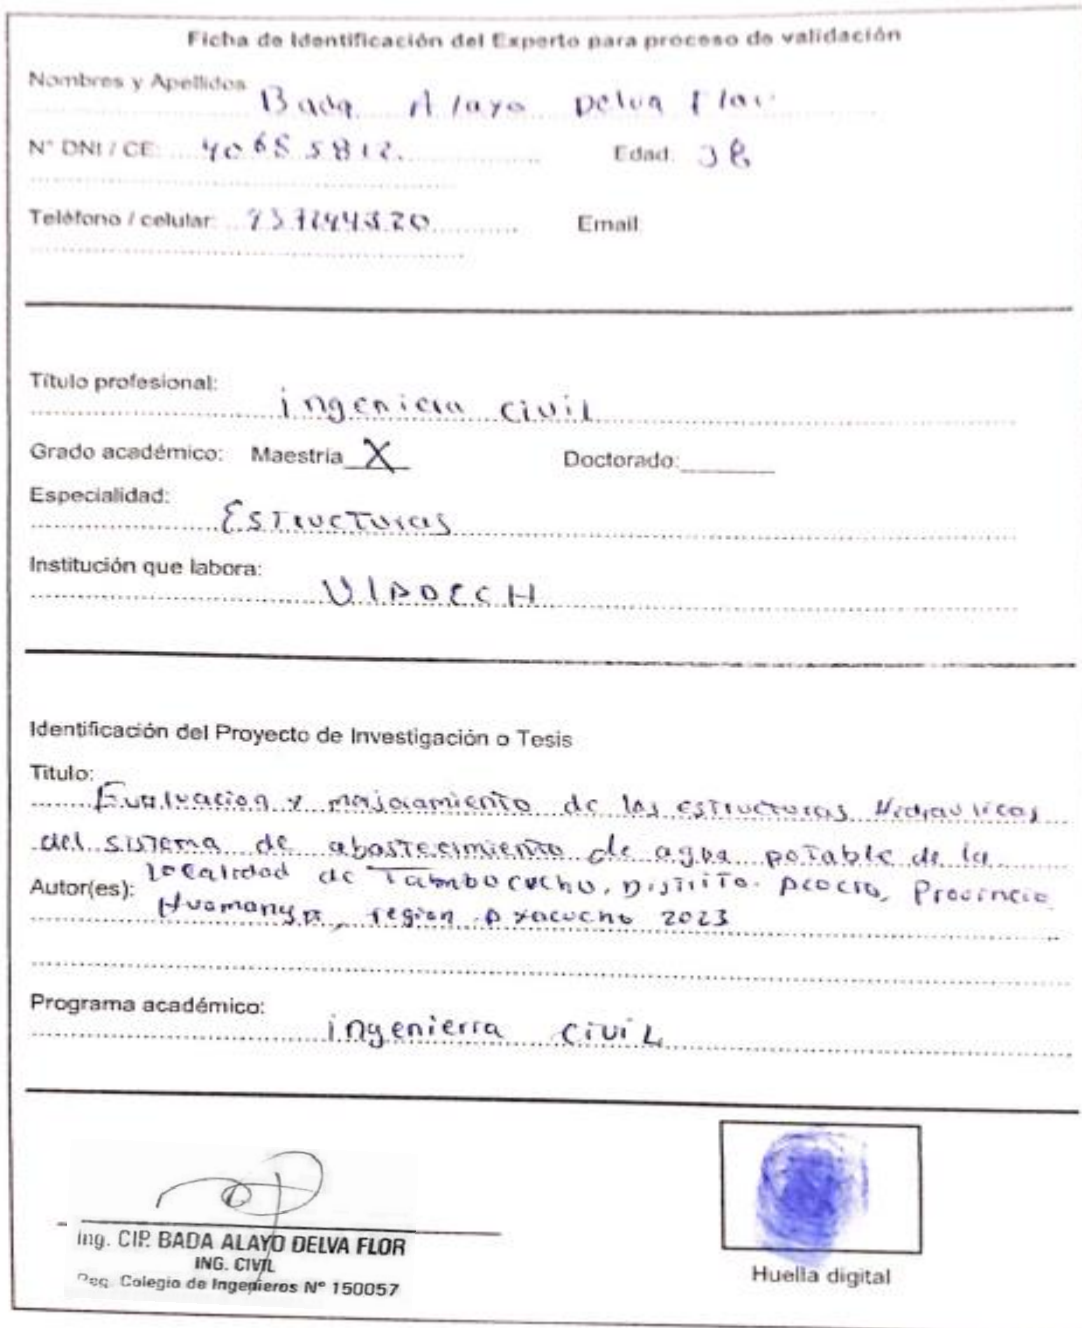 Ficha de Identificación del Experto para proceso de validación
Nombres y Apellidos
Bada Alayo Delva Flor
N° DNI / CE: 40655812. Edad: 38
Teléfono / celular: Email:
Título profesional:
ingenieria civil
Grado académico: Maestría X Doctorado:
Especialidad:
Estructuras
Institución que labora:
Identificación del Proyecto de Investigación o Tesis
Titulo:
Evaluacion y mejoramiento de las estructuras Hidraulicas
del sistema de abastecimiento de agua potable de la
localidad de Distrito. Provincia
Autor(es):
Huamanga, region Ayacucho 2023
Programa académico:
ingenierra civil
ing. CIP. BADA ALAYO DELVA FLOR
ING. CIVIL
Reg. Colegio de Ingenieros N° 150057
Huella digital